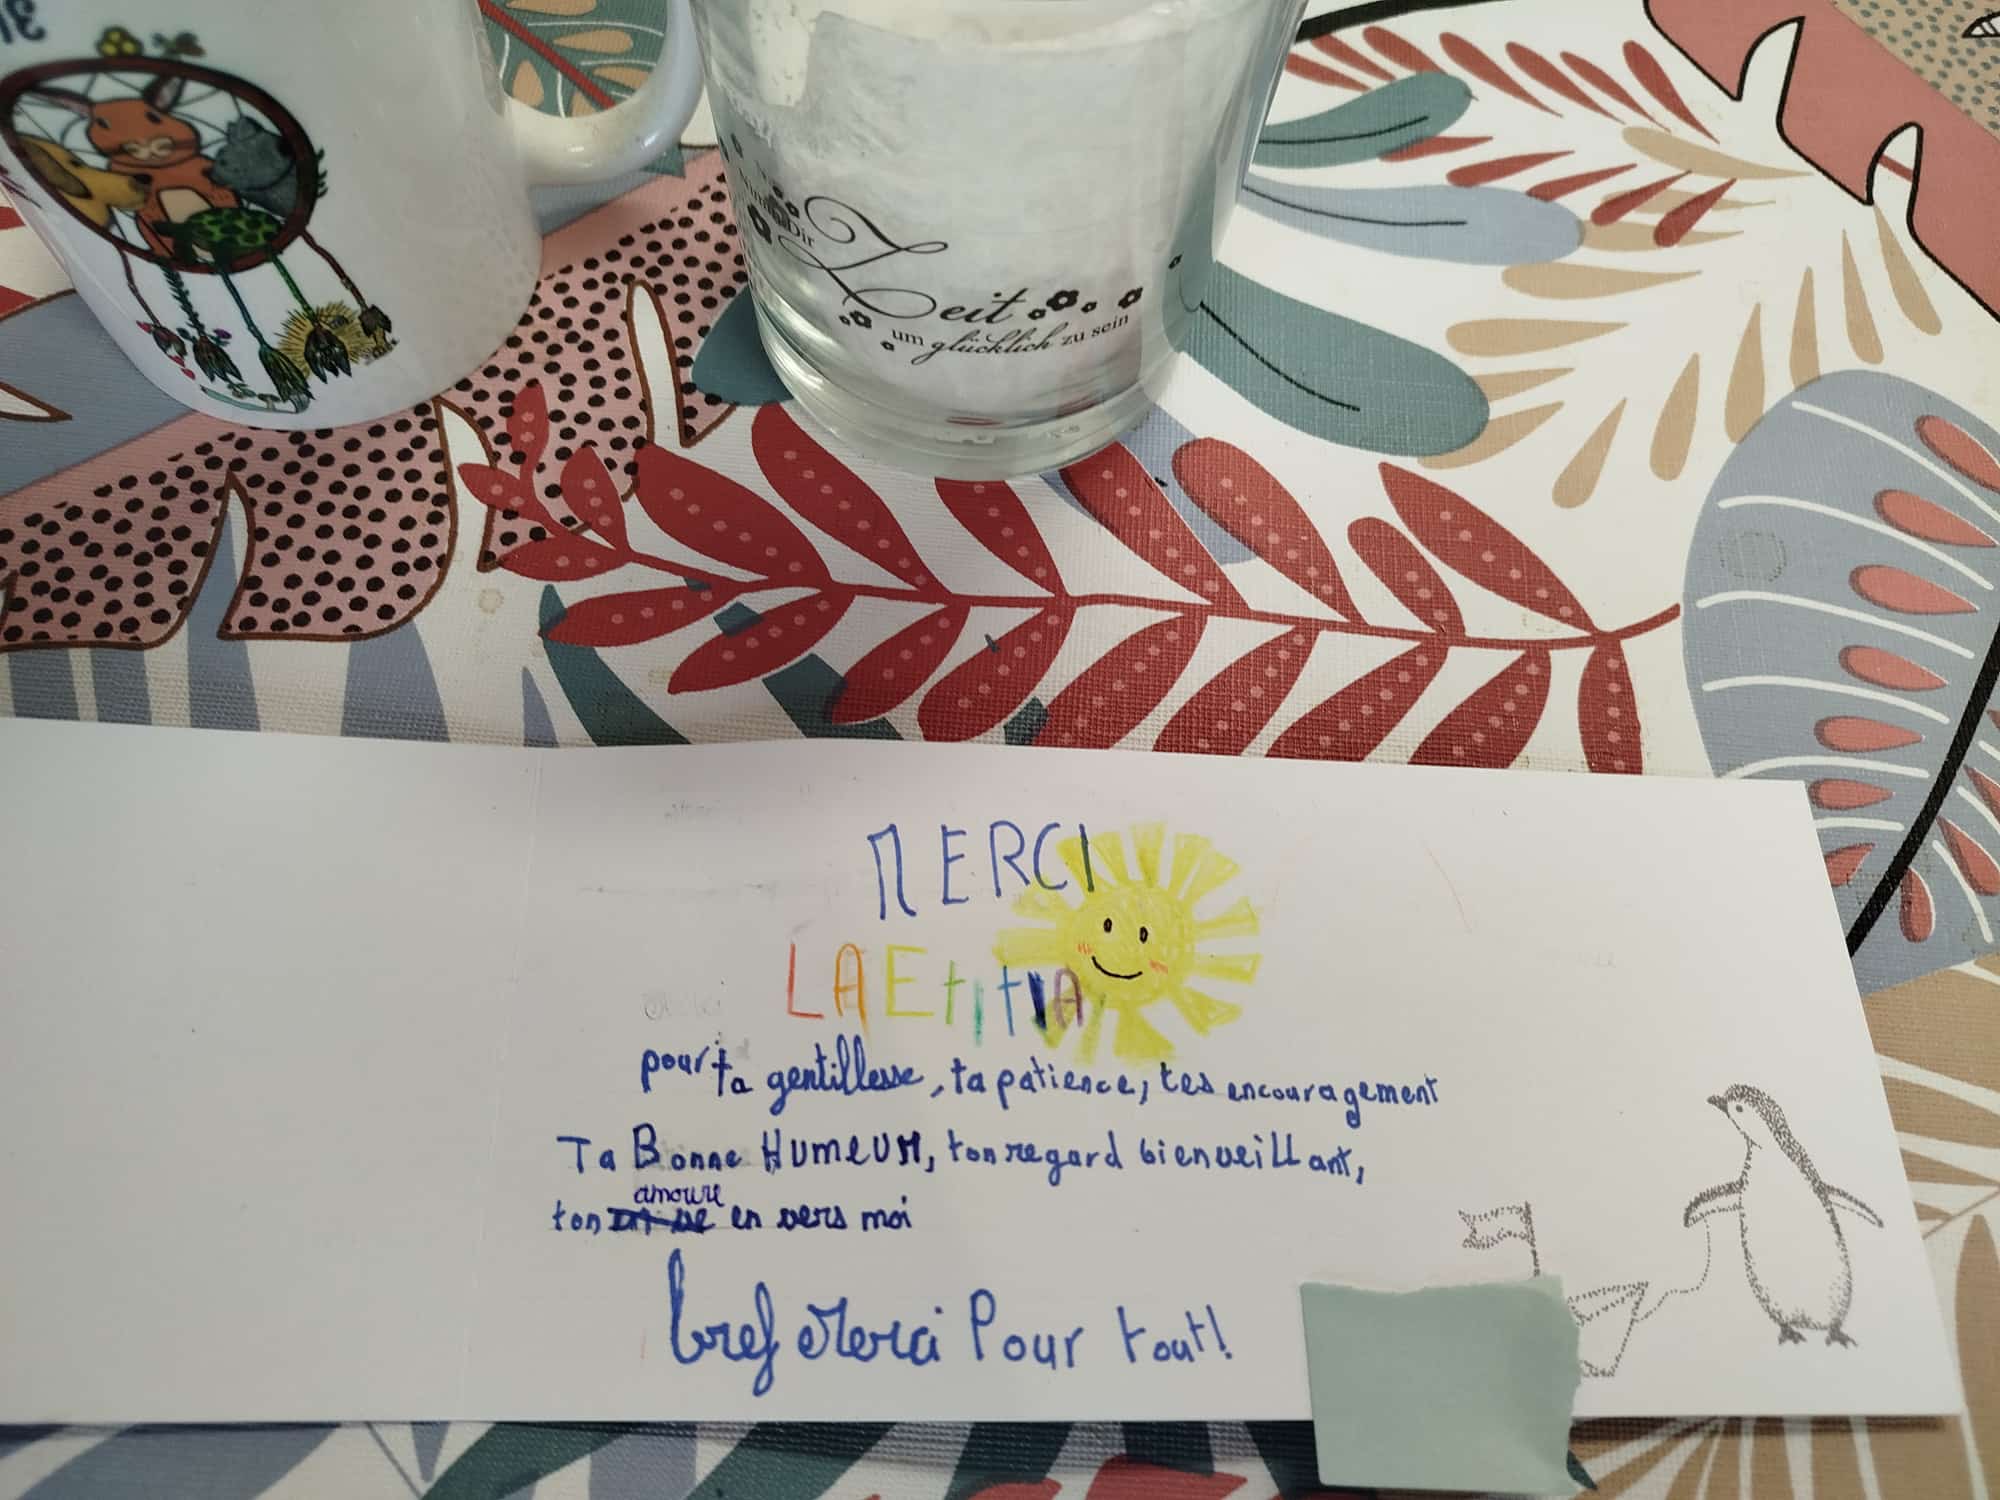 Nimm Dir
Zeit
um glücklich zu sein
MERCI
LAEtitIA
pour ta gentillesse, ta patience, tes encouragement
Ta Bonne HUMEUR, ton regard bienveillant,
amoure
ton en vers moi
bref Merci Pour tout!